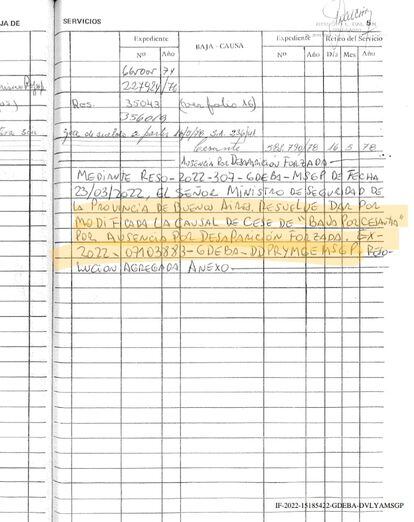 JA DE
SERVICIOS
5
Expediente
BAJA - CAUSA
Expediente
Retiro del Servicio
Nº
Año
Nº
Año
Día
Mes
Año
227924/76
Res. 35043
3560/9
Cesante 581.790/78 16 5 78
AUSENCIA POR DESAPARICIÓN FORZADA-
MEDIANTE RESO-2022-307-GDEBA-MSGP DE FECHA
23/03/2022, EL SEÑOR MINISTRO DE SEGURIDAD DE
LA PROVINCIA DE BUENOS AIRES, RESUELVE DAR POR
MODIFICADA LA CAUSAL DE CESE DE "BAJA POR CESANTIA"
POR AUSENCIA POR DESAPARICIÓN FORZADA. EX-
2022-07103883-GDEBA-DDPRYMGEMSGP. RESO-
LUCION AGREGADA ANEXO.
IF-2022-15185422-GDEBA-DVLYAMSGP